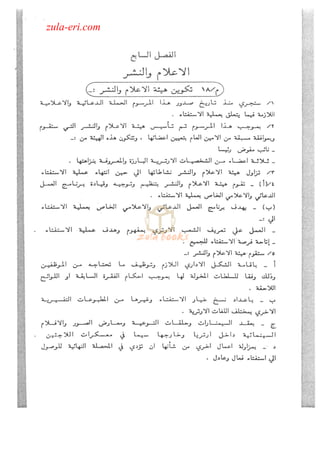 zula-eri.com
الفصل السابع
الاعلام والنشر
(م/١٨ تكوين هيئة الاعلام والنشر :ـ
١/ ستجرى منذ تاريخ صدور هذا المرسوم الحملة الدعائية والاعلامية
اللازمة فيما يتعلق بعملية الاستفتاء .
٢/ بموجب هذا المرسوم تم تأسيس هيئة الاعلام والنشر التي ستقوم
وبموافقة مسبقة من الامين العام بتعيين اعضائها . وتتكون هذه الهيئة من :ـ
ـ نائب مفوض رئيسا
ـ ثلاثة اعضاء من الشخصيات الارترية البارزة والمعروفة بنزاهتها .
٣/ تزاول هيئة الاعلام والنشر نشاطاتها الى حين انتهاء عملية الاستفتاء
٤/(أ) ـ تقوم هيئة الاعلام والنشر بتنظيم وتوجيه وقيادة برنامج العمل
الدعائي والاعلامي الخاص بعملية الاستفتاء .
(ب) ـ يهدف برنامج العمل الدعائي والاعلامي الخاص بعملية الاستفتاء
الى :ـ
ـ العمل على تعريف الشعب الارتري بمفهوم وهدف عملية الاستفتاء .
ـ إتاحة فرصة الاستفتاء للجميع .
٥/ ستقوم هيئة الاعلام والنشر :ـ
أ ـ باقامة الشكل الاداري اللازم وتوظيف ما تحتاجه من الموظفين
وذلك وفقا للسلطات المخولة لها بموجب احكام الفقرة السابقة او اللوائح
اللاحقة .
ب ـ باعداد نسخ خيار الاستفتاء وغيرها من المطبوعات التفسيرية
الاخرى بمختلف اللغات الارترية .
ج ـ بعقد السيمنارات وحلقات التوعية ومعارض الصور والافلام
السينمائية داخل أرتريا وخارجها سيما في معسكرات اللاجئين .
د ـ بمزاولة اعمال اخرى من شأنها ان تؤدى في المحصلة النهائية للوصول
الى استفتاء فعال وعادل .
zula books